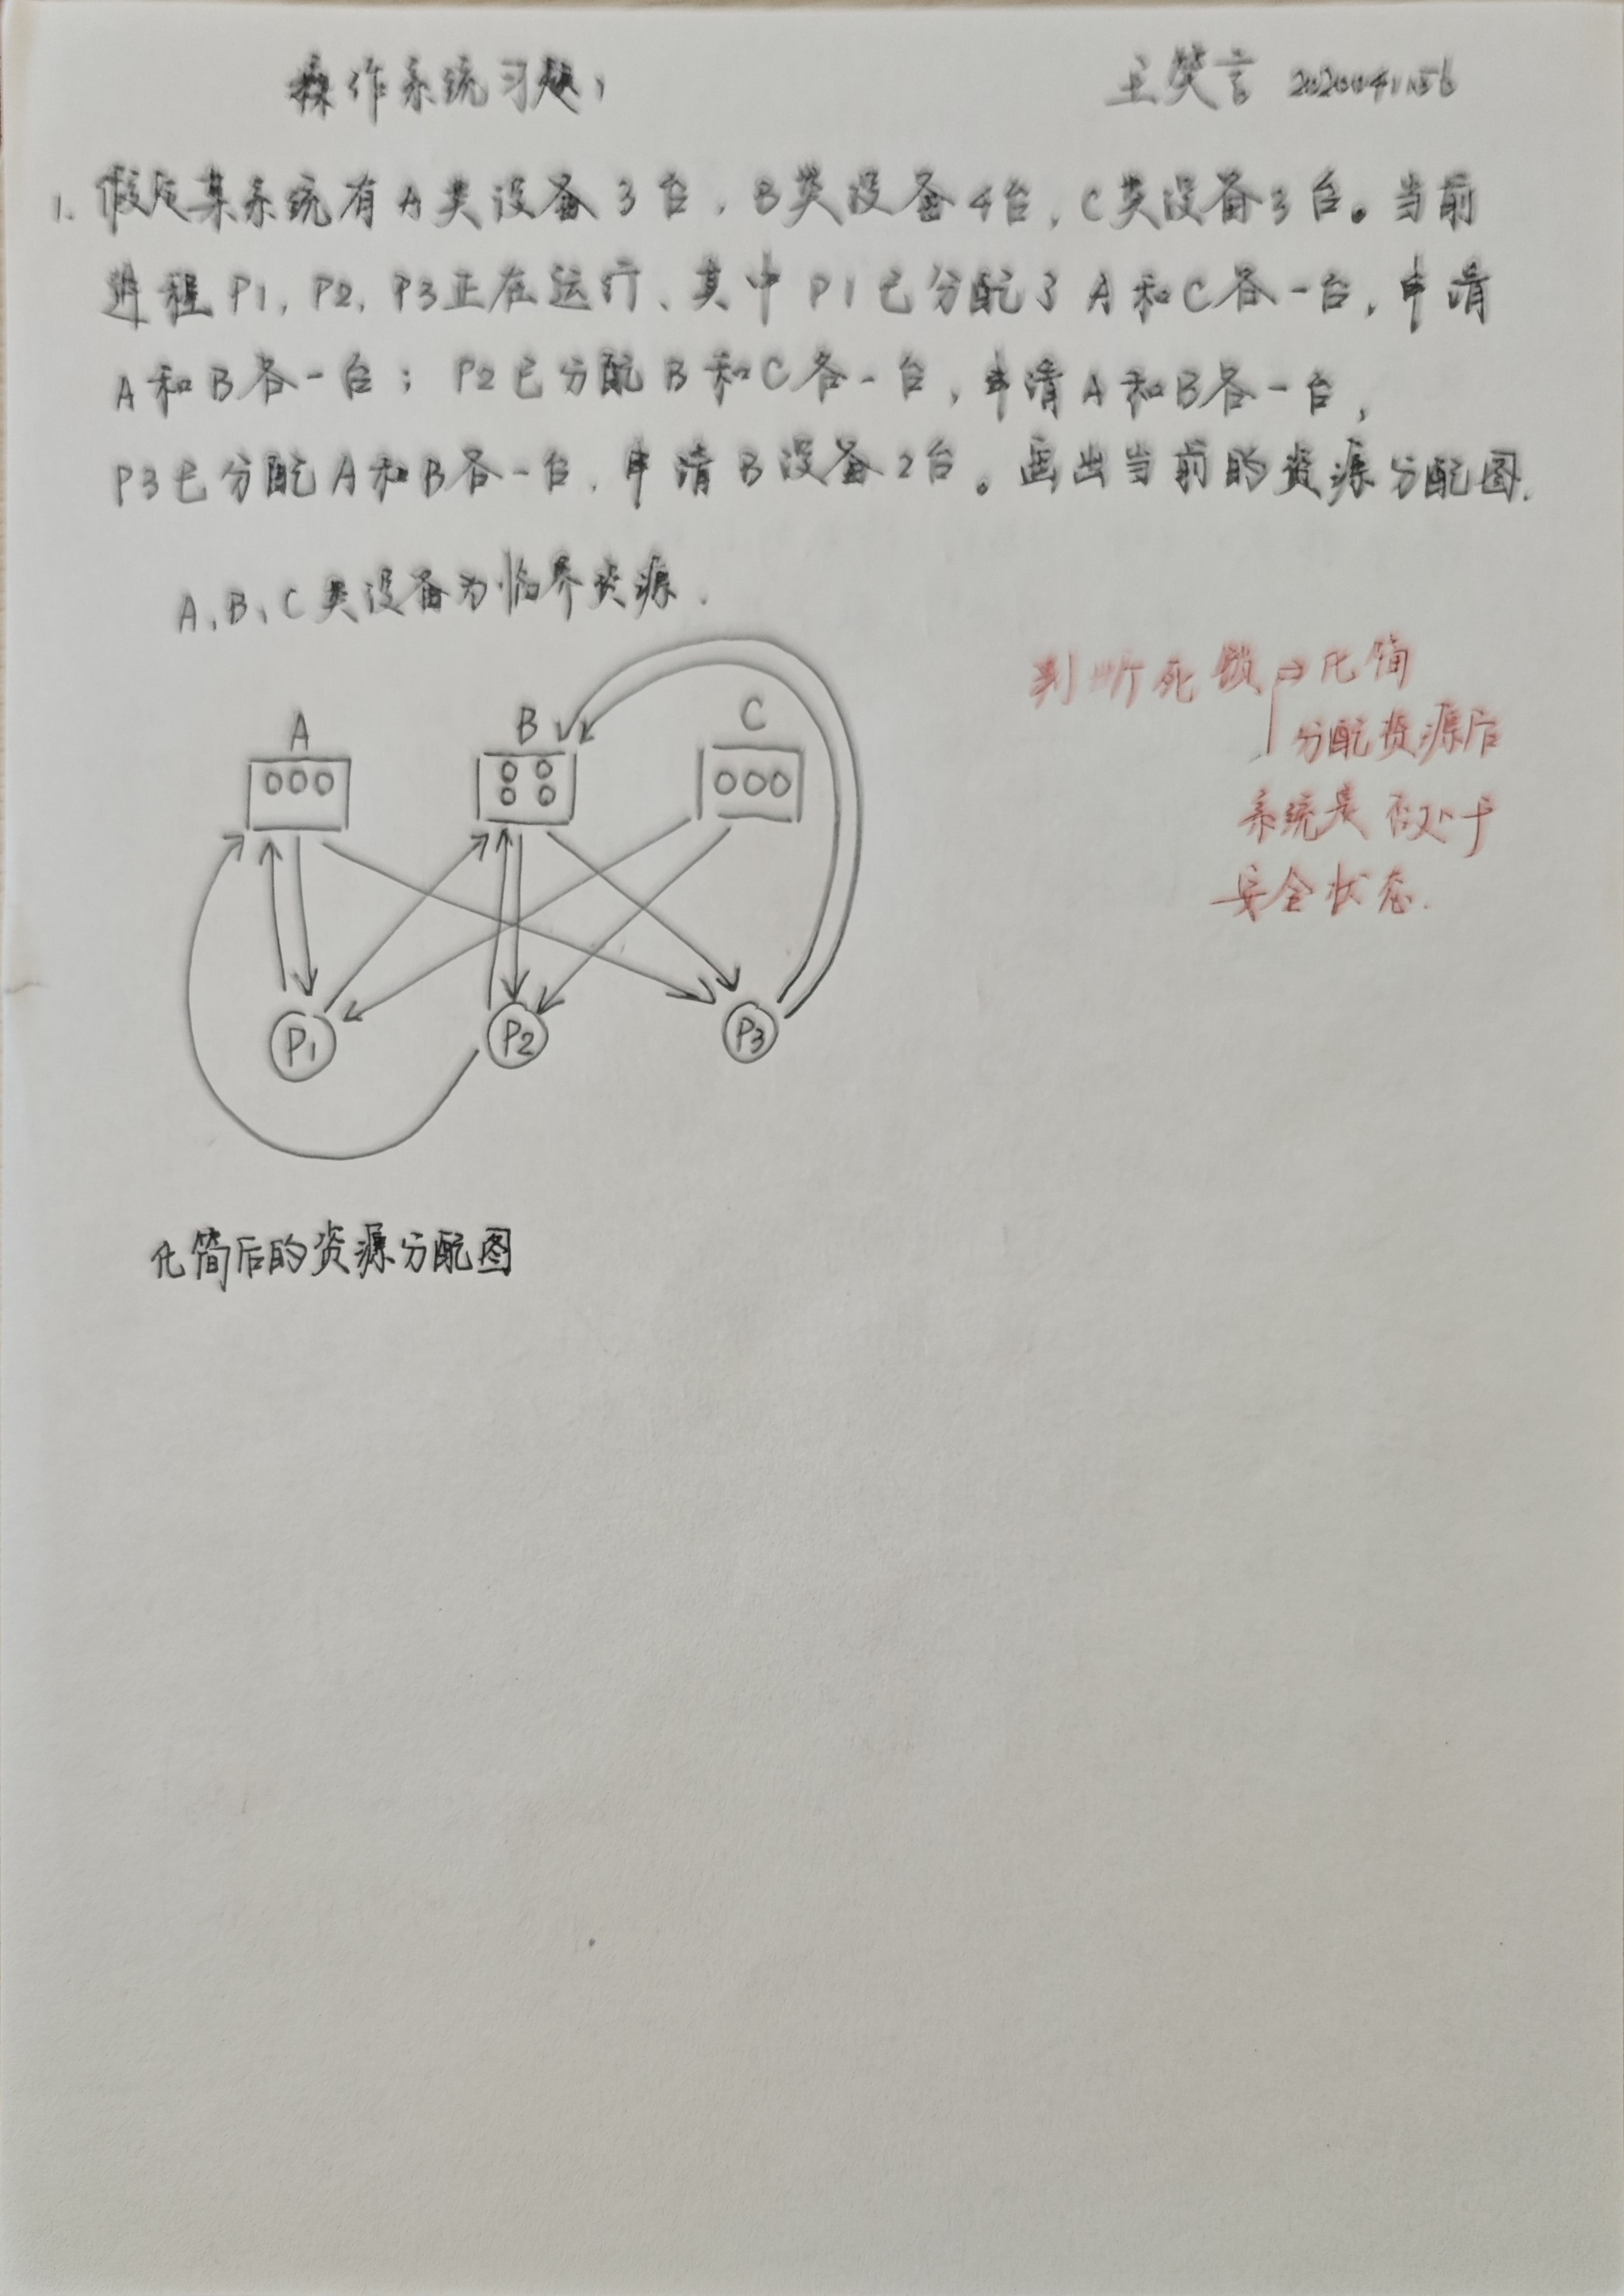 操作系统习题1
王笑言 2020041156
1. 假定某系统有A类设备3台,B类设备4台,C类设备3台。当前
进程P1,P2,P3正在运行、其中P1已分配了A和C各一台,申请
A和B各一台;P2已分配B和C各一台,申请A和B各一台,
P3已分配A和B各一台,申请B设备2台。画出当前的资源分配图.
A、B、C类设备为临界资源.
判断死锁→化简
分配资源后
系统是否处于
安全状态.
A B C
P1 P2 P3
化简后的资源分配图